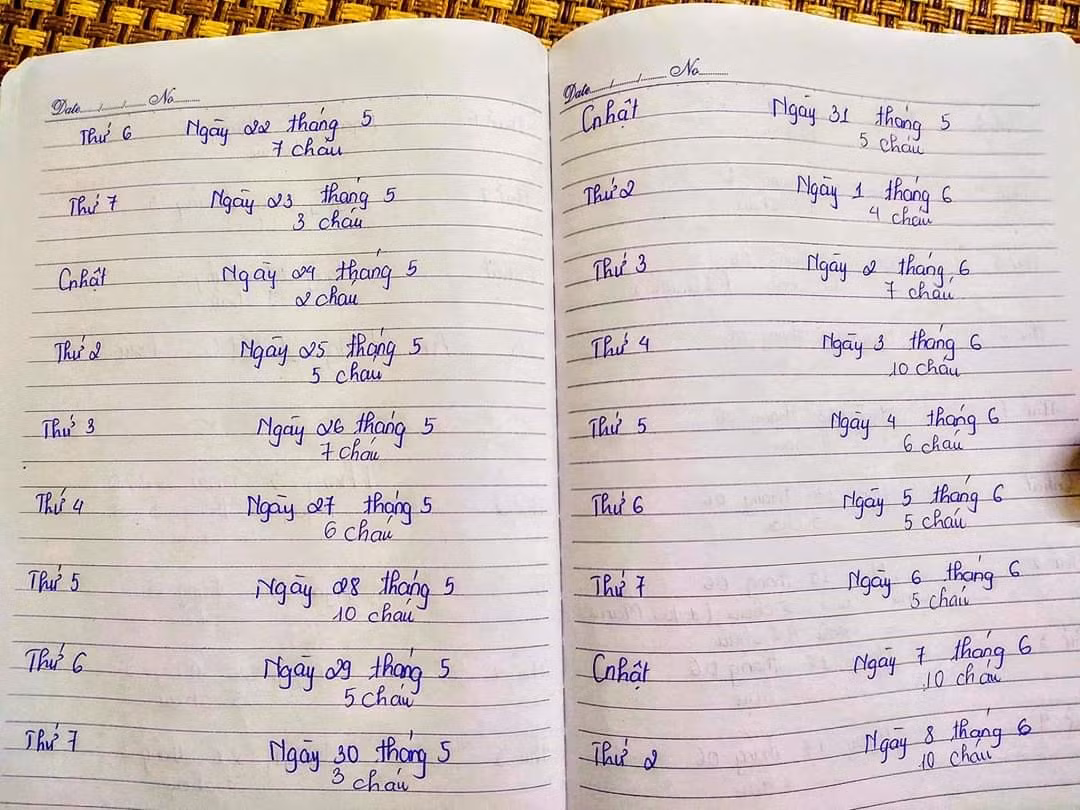 Date...../...../..... No.........
Thứ 6 Ngày 22 tháng 5
7 cháu
Thứ 7 Ngày 23 tháng 5
3 cháu
Cnhật Ngày 24 tháng 5
2 cháu
Thứ 2 Ngày 25 tháng 5
5 cháu
Thứ 3 Ngày 26 tháng 5
7 cháu
Thứ 4 Ngày 27 tháng 5
6 cháu
Thứ 5 Ngày 28 tháng 5
10 cháu
Thứ 6 Ngày 29 tháng 5
5 cháu
Thứ 7 Ngày 30 tháng 5
3 cháu
Date...../...../..... No.........
Cnhật Ngày 31 tháng 5
5 cháu
Thứ 2 Ngày 1 tháng 6
4 cháu
Thứ 3 Ngày 2 tháng 6
7 cháu
Thứ 4 Ngày 3 tháng 6
10 cháu
Thứ 5 Ngày 4 tháng 6
6 cháu
Thứ 6 Ngày 5 tháng 6
5 cháu
Thứ 7 Ngày 6 tháng 6
5 cháu
Cnhật Ngày 7 tháng 6
10 cháu
Thứ 2 Ngày 8 tháng 6
10 cháu